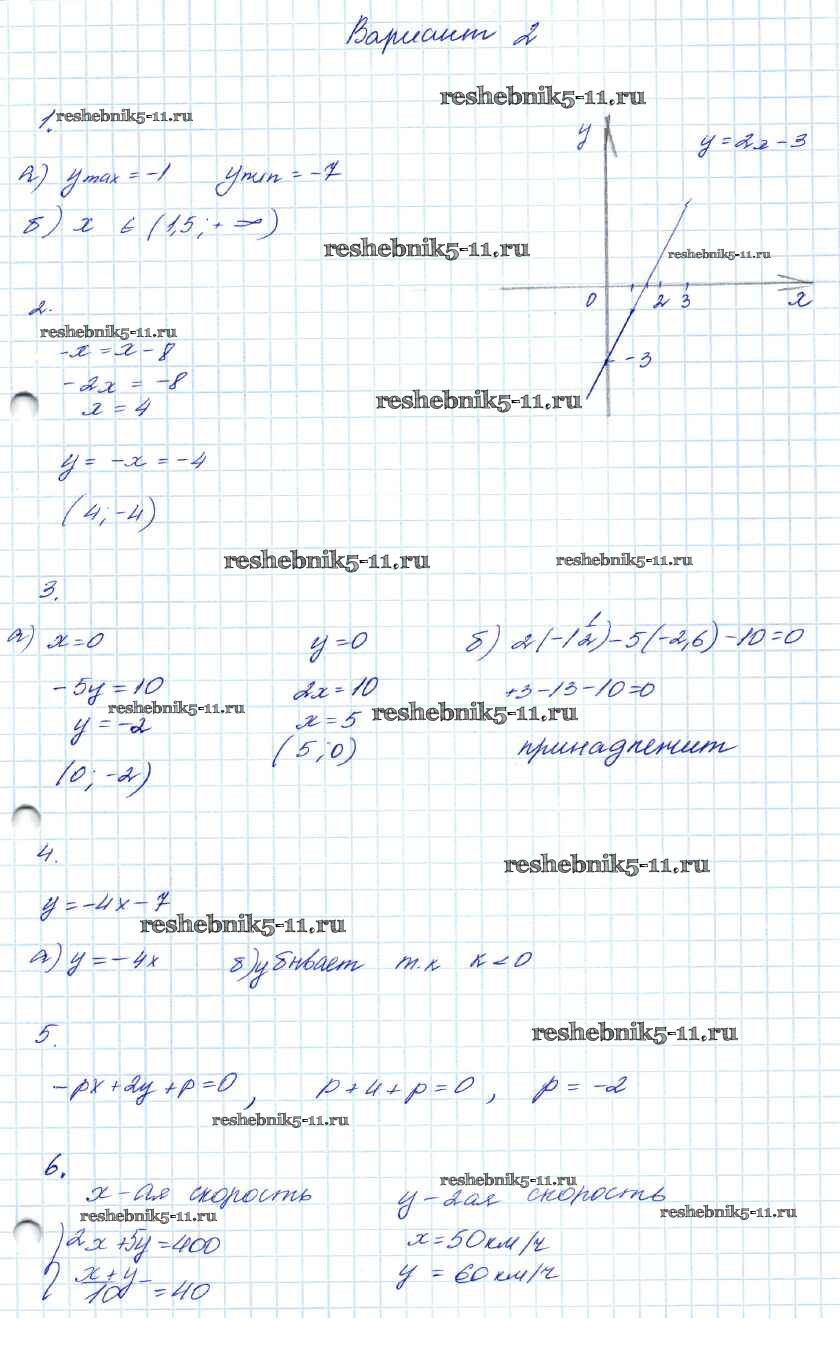 Вариант 2
reshebnik5-11.ru
1. reshebnik5-11.ru
y y = 2x - 3
а) y max = -1 y min = -7
б) x ∈ (1,5; +∞)
reshebnik5-11.ru reshebnik5-11.ru
0 2 3 x
2.
reshebnik5-11.ru
-x = x - 8
-3
-2x = -8
x = 4 reshebnik5-11.ru
y = -x = -4
(4; -4)
reshebnik5-11.ru reshebnik5-11.ru
3.
а) x = 0 y = 0 б) 2(-1 1/2) - 5(-2,6) - 10 = 0
-5y = 10 2x = 10 +3 - 13 - 10 = 0
reshebnik5-11.ru reshebnik5-11.ru
y = -2 x = 5
(0; -2) (5; 0) принадлежит
4.
reshebnik5-11.ru
y = -4x - 7
reshebnik5-11.ru
а) y = -4x б) убывает т.к k < 0
5.
reshebnik5-11.ru
-px + 2y + p = 0, p + 4 + p = 0, p = -2
reshebnik5-11.ru
6.
reshebnik5-11.ru
x - ая скорость y - 2ая скорость
reshebnik5-11.ru reshebnik5-11.ru
2x + 5y = 400 x = 50 км/ч
x + y / 10 = 40 y = 60 км/ч